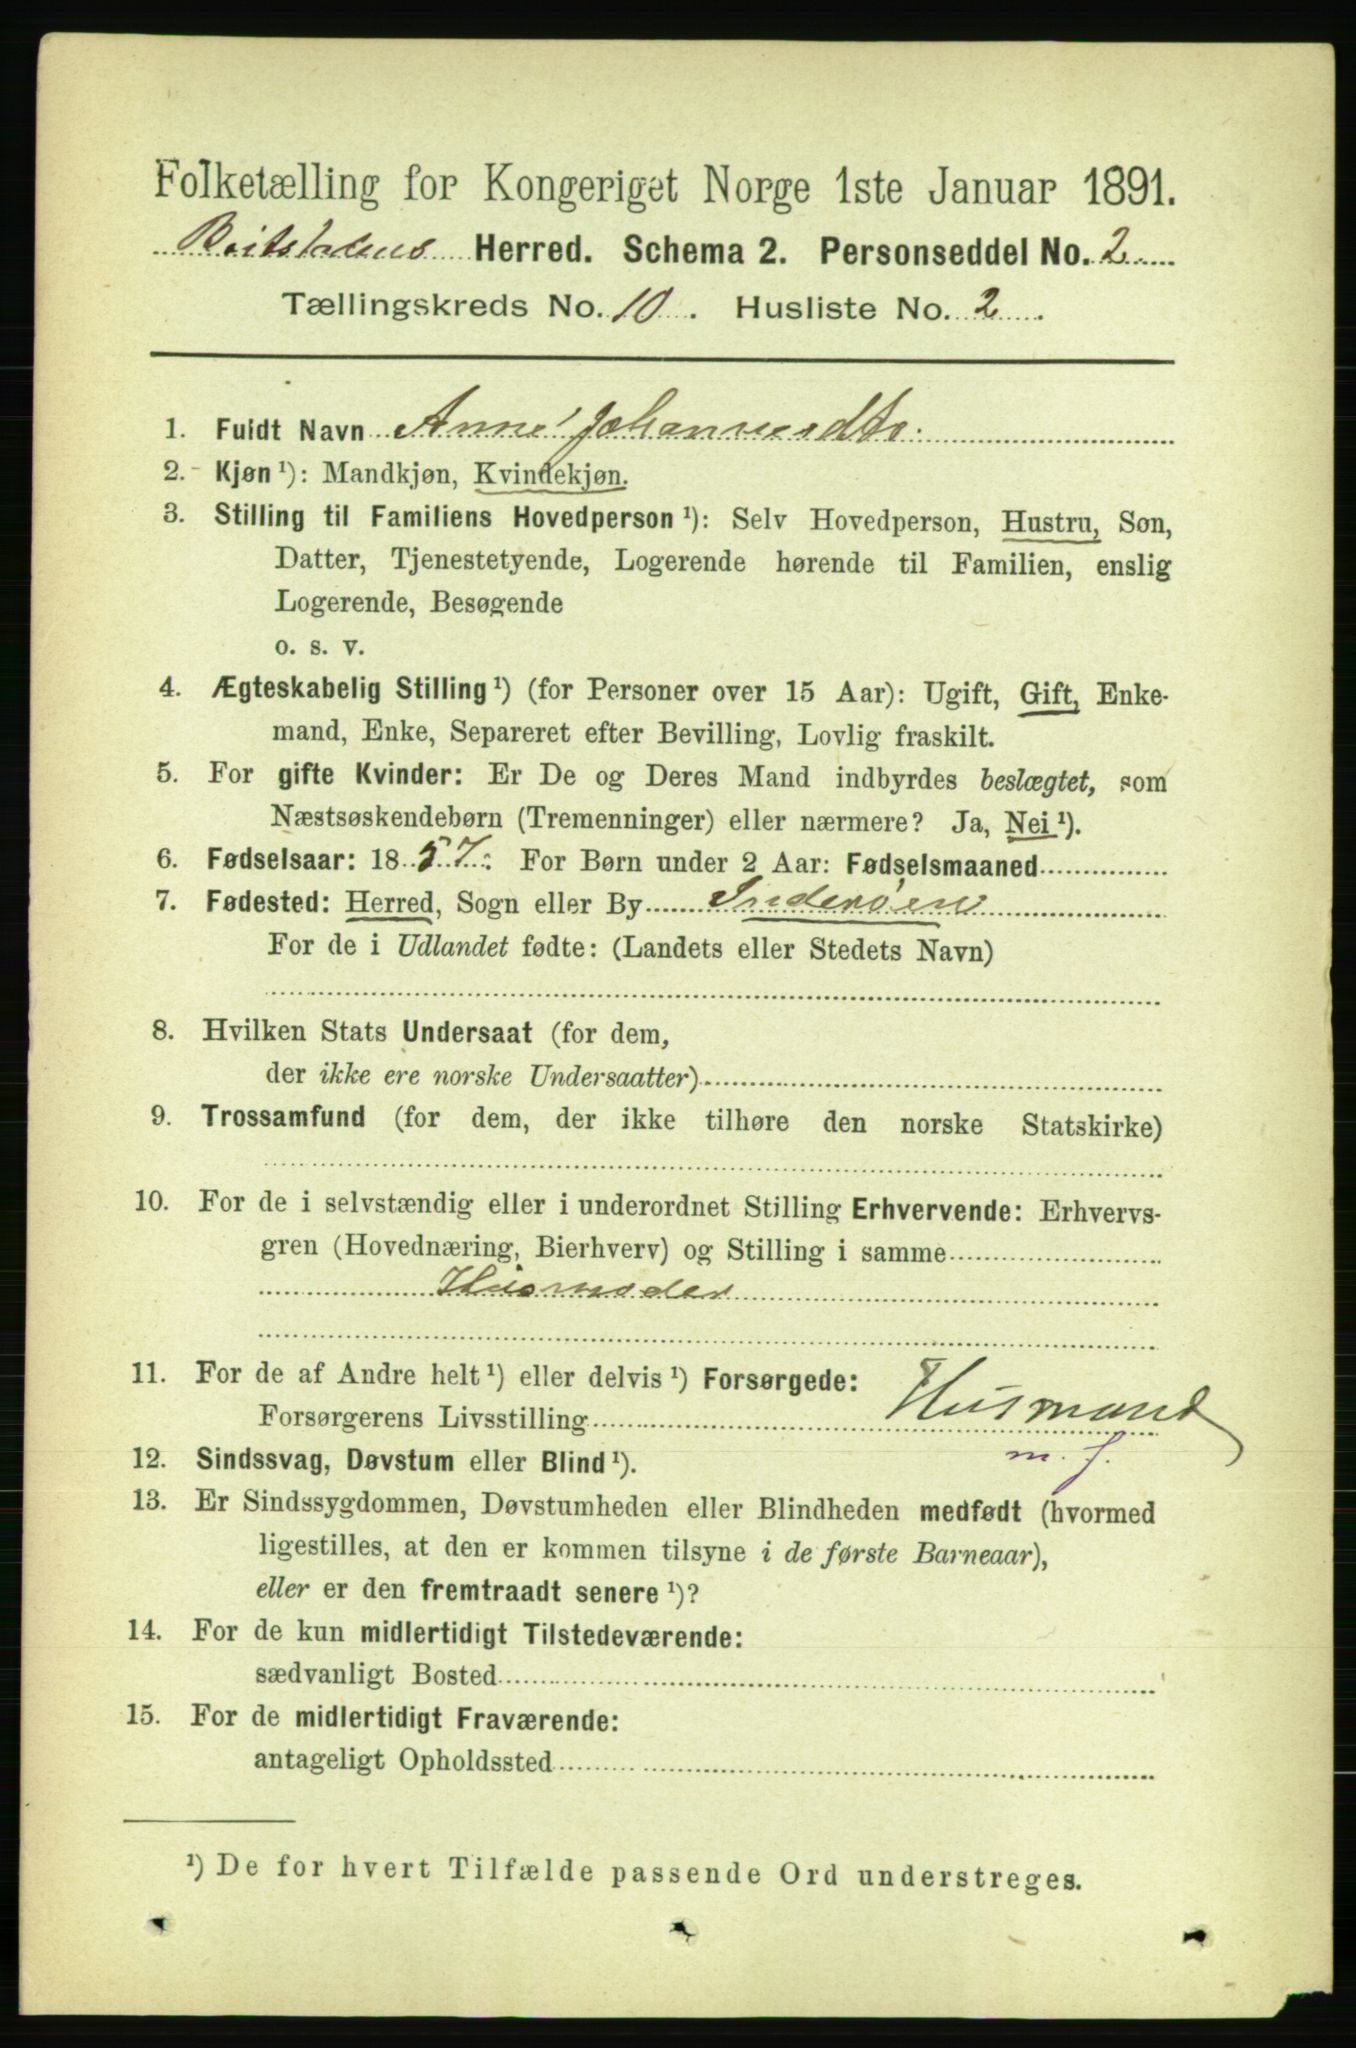 Folketælling for Kongeriget Norge 1ste Januar 1891.
Beitstadens Herred. Schema 2. Personseddel No. 2
Tællingskreds No. 10. Husliste No. 2.
1. Fuldt Navn Anne Johannesdtr.
2. Kjøn ¹): Mandkjøn, Kvindekjøn.
3. Stilling til Familiens Hovedperson ¹): Selv Hovedperson, Hustru, Søn,
Datter, Tjenestetyende, Logerende hørende til Familien, enslig
Logerende, Besøgende
o. s. v.
4. Ægteskabelig Stilling ¹) (for Personer over 15 Aar): Ugift, Gift, Enke-
mand, Enke, Separeret efter Bevilling, Lovlig fraskilt.
5. For gifte Kvinder: Er De og Deres Mand indbyrdes beslægtet, som
Næstsøskendebørn (Tremenninger) eller nærmere? Ja, Nei ¹).
6. Fødselsaar: 1857. For Børn under 2 Aar: Fødselsmaaned
7. Fødested: Herred, Sogn eller By Inderøen
For de i Udlandet fødte: (Landets eller Stedets Navn)
8. Hvilken Stats Undersaat (for dem,
der ikke ere norske Undersaatter)
9. Trossamfund (for dem, der ikke tilhøre den norske Statskirke)
10. For de i selvstændig eller i underordnet Stilling Erhvervende: Erhvervs-
gren (Hovednæring, Bierhverv) og Stilling i samme
Husmoder
11. For de af Andre helt ¹) eller delvis ¹) Forsørgede:
Forsørgerens Livsstilling Husmand
m. j.
12. Sindssvag, Døvstum eller Blind ¹).
13. Er Sindssygdommen, Døvstumheden eller Blindheden medfødt (hvormed
ligestilles, at den er kommen tilsyne i de første Barneaar),
eller er den fremtraadt senere ¹)?
14. For de kun midlertidigt Tilstedeværende:
sædvanligt Bosted
15. For de midlertidigt Fraværende:
antageligt Opholdssted
¹) De for hvert Tilfælde passende Ord understreges.